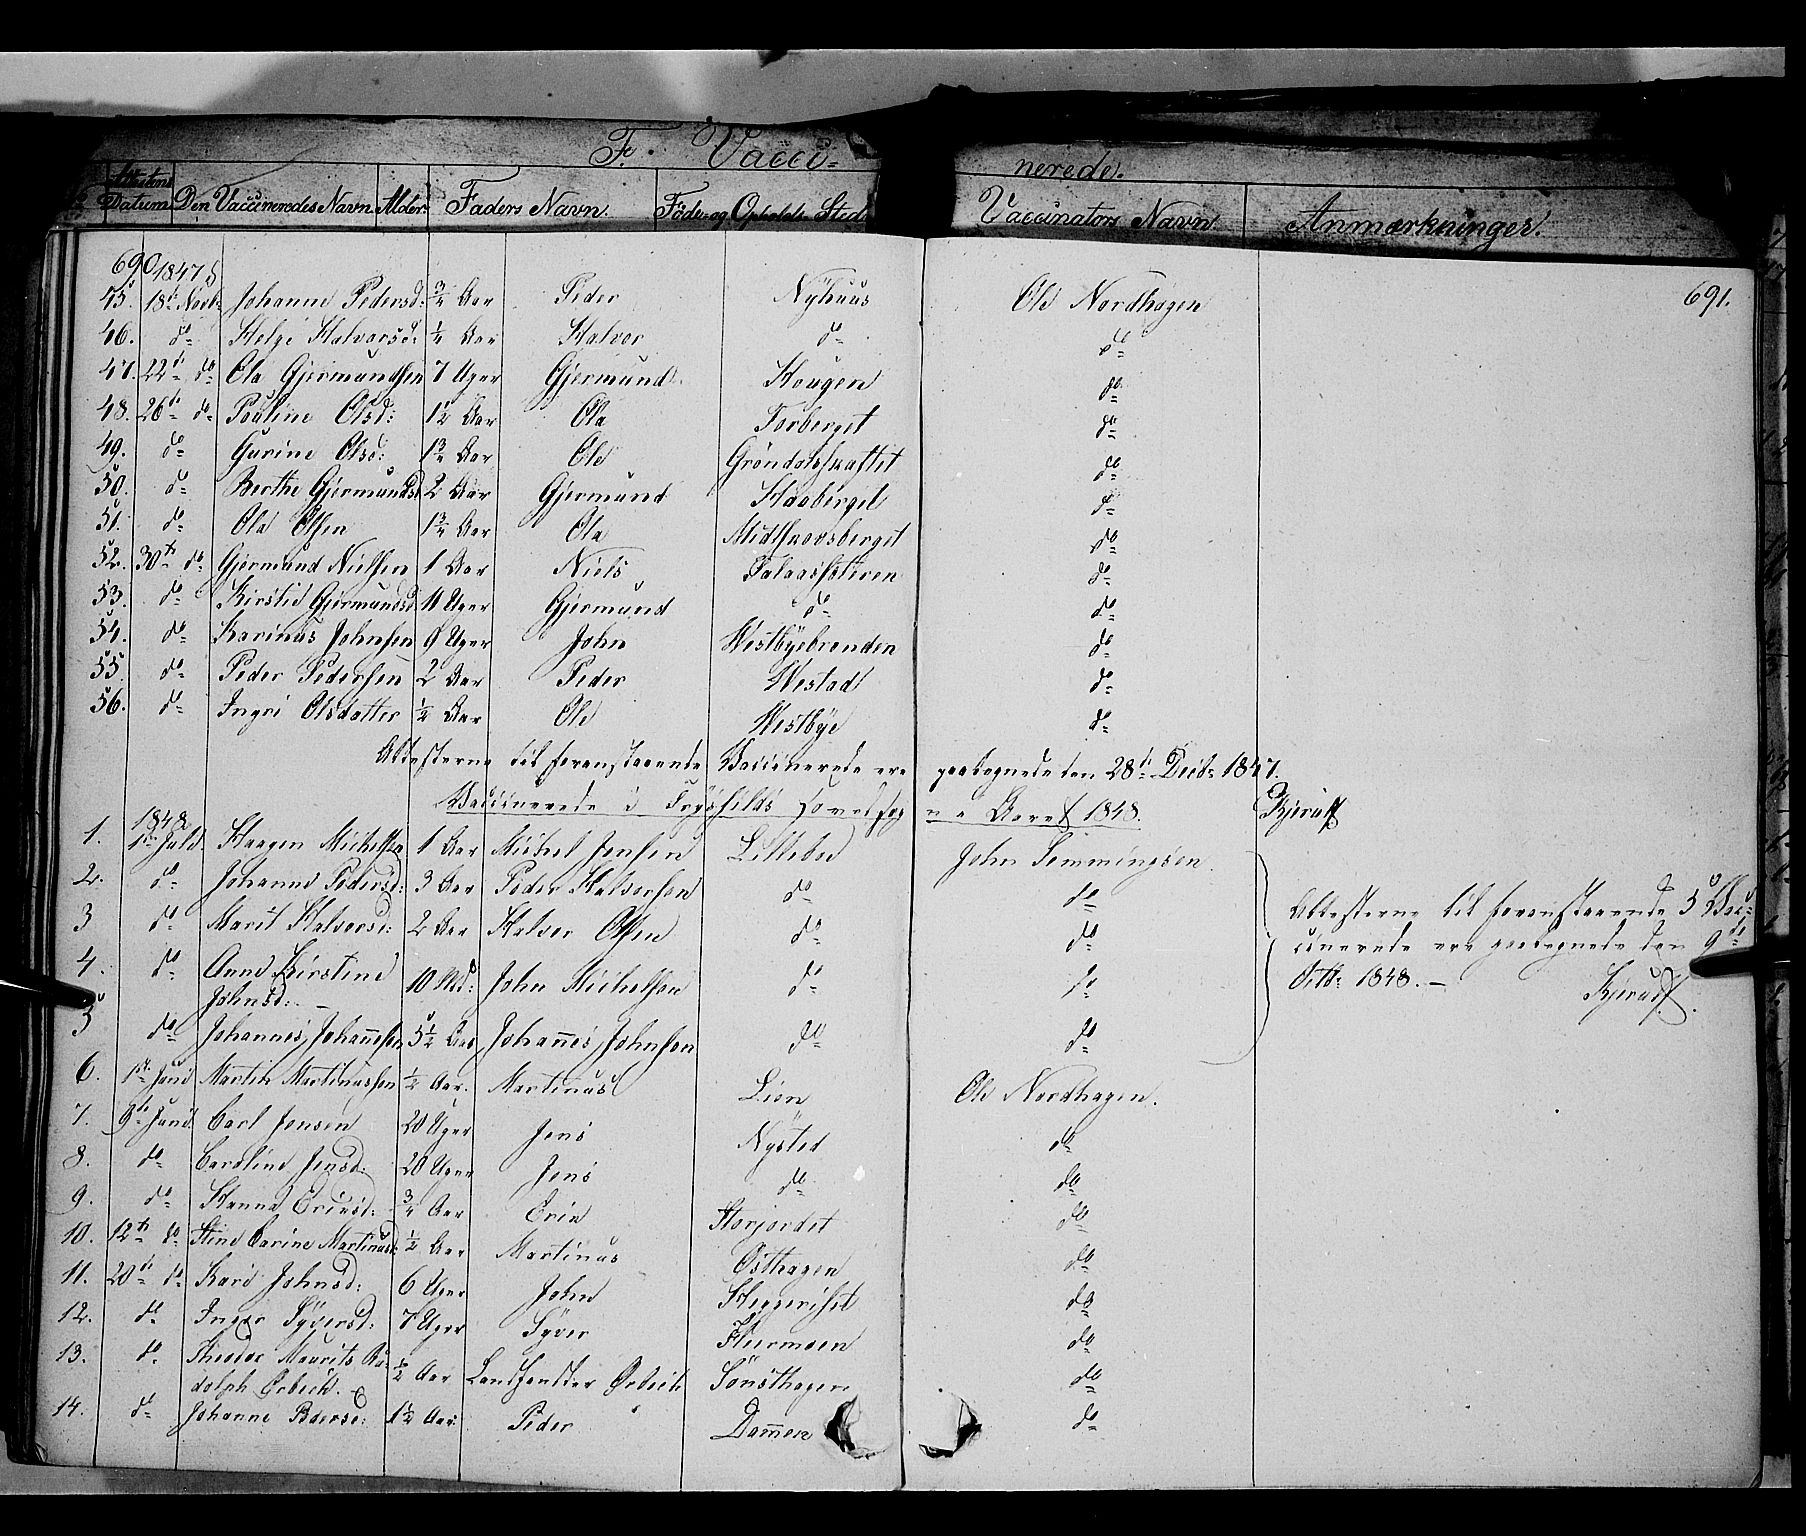 F. Vacci-
nerede.
No Attestens Datum Den Vaccineredes Navn Alder Faders Navn. Føde- og Opholds Sted Vaccinators Navn Anmærkninger.
690 1847 691.
45. 18de Novb: Johanne Pedersd: 3/4 Aar Peder Nyhuus Ole Nordhagen
46. do Helge Halvorsd: 1/2 Aar Halvor do do
47. 22de do Ola Gjermundsen 7 Uger Gjermund Hougen do
48. 26de do Pauline Olsd: 1 1/2 Aar Ola Torberget do
49. do Gurine Olsd: 1 3/4 Aar Ole Gröndalsskaftet do
50. do Berthe Gjermundsd 2 Aar Gjermund Haaberget do
51. do Ola Olsen 1 3/4 Aar Ola Midtskovsberget do
52. 30te do Gjermund Nielsen 1 Aar Niels do
53. do Kirstie Gjermundsd 11 Uger Gjermund do do
54. do Karinus Johnsen 9 Uger John Westbyebraaden do
55. do Peder Pedersen 2 Aar Peder Westad do
56. do Ingri Olsdatter 1/2 Aar Ole Westbye do
Attesterne til foranstaaende Vaccinerede ere paategnede den 28de Decb: 1847.
Kjerulf
Vaccinerede i Trysilds Hovedsogn i Aaret 1848.
1848
1. 1te Juld. Haagen Michelsen 1 Aar Michel Jensen Lillebo John Semmingsen
2. do Johanne Pedersd: 3 Aar Peder Halvorsen do do
3 do Marit Halvorsd: 2 Aar Halvor Olsen do do
4. do Anne Kirstine Johnsd: 10 Md: John Michelsen do do
5 do Johannes Johannesen 5 1/2 Aar Johannes Johnsen do do
Attesterne til foranstaaende 5 Vac-
cinerede ere paategnede den 9de
Octb: 1848. –
Kjerulf.
6. 1te Juni Martin Martinussen 1/2 Aar. Martinus Lien Ole Nordhagen.
7. 9de Juni Carl Jensen 20 Uger Jens Nysted do
8. do Caroline Jensd: 20 Uger Jens do do
9. do Hanne Ericsd: 3/4 Aar Eric Storjordet do
10. 12te do Stine Carine Martinusd: 1/2 Aar Martinus Østhagen do
11. 20de do Kari Johnsd: 6 Uger John Heggeriset do
12. do Inger Syversd: 7 Uger Syver Flermoen do
13. do Theodor Maurits Ru-
dolph Ørbeck. 1/2 Aar Landhandler Ørbeck Sönsthagen do
14. do Johanne Pdersd: 1 1/2 Aar: Peder Dammen do